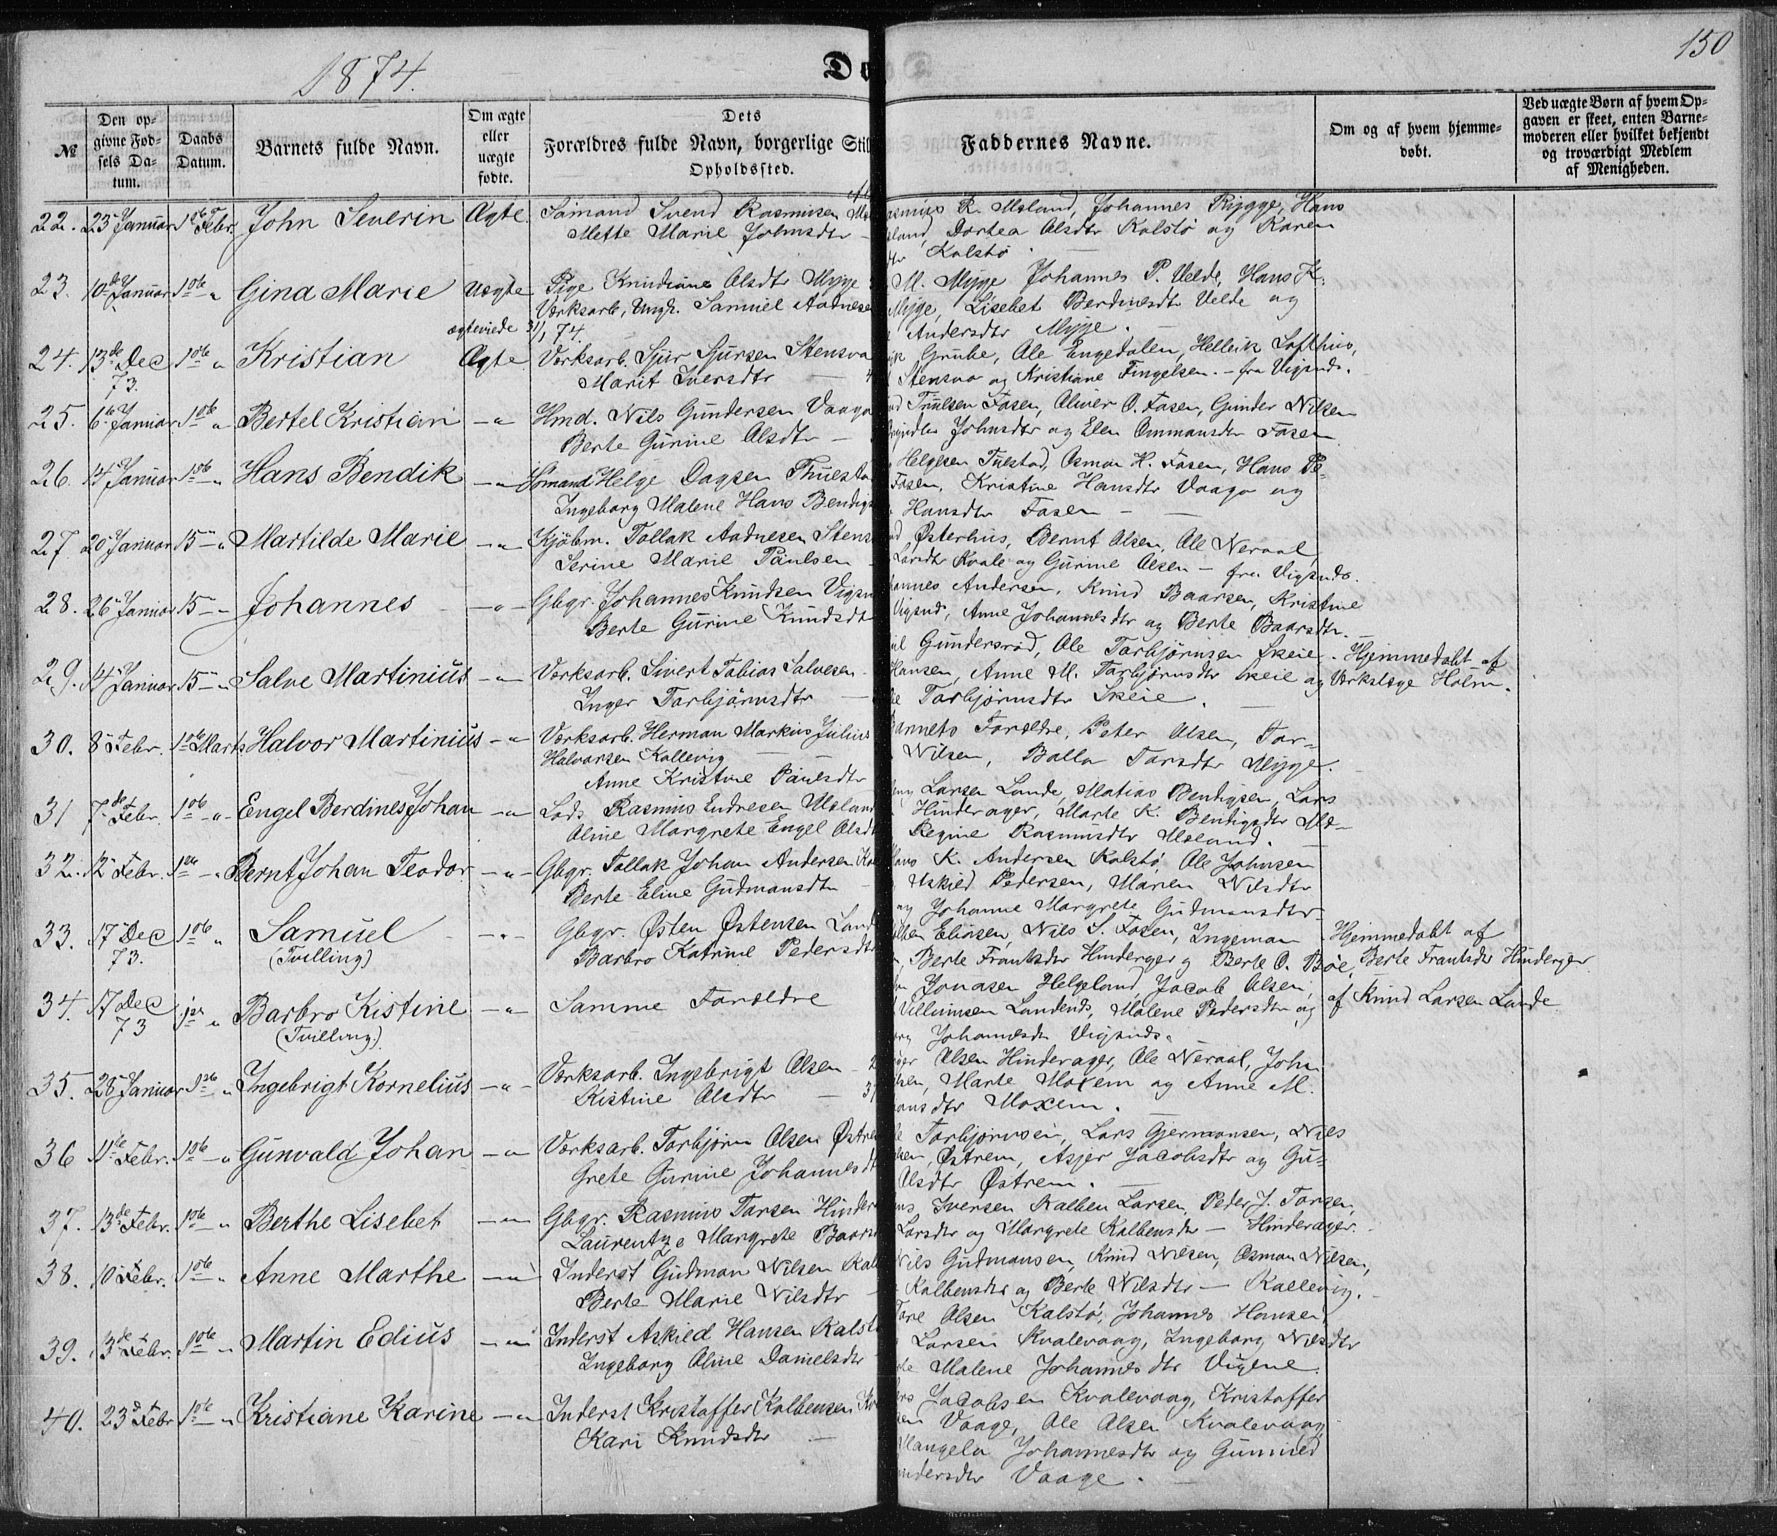 150
1874.
Do
No
Den opgivne Fødsels Datum.
Daabs Datum.
Barnets fulde Navn.
Om ægte eller uægte fødte.
Dets Forældres fulde Navn, borgerlige Stil Opholdssted.
Faddernes Navne.
Om og af hvem hjemmedøbt.
Ved uægte Børn af hvem Opgaven er skeet, enten Barnemoderen eller hvilket bekjendt og troværdigt Medlem af Menigheden.
22. 23 Januar 1ste Febr. John Severin Ægte Sømand Svend Rasmusen
Mette Marie Johnsdtr
R. Møland, Johannes Rygge, Hans
Dortea Olsdtr Kolstø og Karen
Kolstø
23. 10de Januar 1ste " Gina Marie Uægte Pige Knudiane Olsdtr Mygge
Verksarb. Ungk. Samuel Aadnesen
ægteviede 31/1 74.
M. Mygge Johannes P. Velde, Hans K.
Mygge, Lisebet Berdinesdtr Velde og
Andersdtr Mygge.
24. 13de Dec 73. 1ste " Kristian Ægte Verksarb. Sjur Sjursen Stensvo
Marit Iversdtr
Grube, Ole Engedalen, Helleik Lofthus,
Stensvo og Kristiane Fingelsen. - fra Vigsnds.
25. 6te Januar 1ste " Bertel Kristian - " Hmd. Nils Gundersen Vaage
Berte Gurine Olsdtr
Trulsen Fosen, Oliver O. Fosen, Gunder Nilsen
Johnsdtr og Elen Ommansdtr Fosen
26. 14 Januar 1ste " Hans Bendik - " Hmand Helge Dagsen Thuesta
Ingeborg Malene Hans Bendigs
Helgesen Tuestad, Osmon H. Fosen, Hans Pe
Fosen, Kristine Hansdtr Vaage og
Hansdtr Fosen
27. 20 Januar 15 " Martilde Marie - " Kjøbm. Tollak Aadnesen Stens
Serine Marie Paulsen
Østerhus, Bernt Olsen, Ole Neraal,
Larsdtr Kvale og Gurine Olsen - fra Vigsnds.
28. 26 Januar 15 " Johannes - " Gbgr. Johannes Knudsen Vigsn
Berte Gurine Knudsdt
Johannes Andersen, Knud Baarsen, Kristine
Vigsnd, Anne Johannesdtr og Berte Baarsdtr.
29. 14 Januar 15 " Salve Martinius - " Verksarb. Sivert Tobias Salvesen
Inger Torbjørnsdtr
Gundersrød, Ole Torbjørnsen Skeie
Hansen, Anne M. Torbjørnsdtr Skeie og
Torbjørnsdtr Skeie.
Hjemmedøbt af
Verkslæge Holm.
30. 8 Febr. 1ste Marts Halvor Martinius - " Verksarb. Herman Markus Julius
Halvorsen Kallevig
Anne Kristine Paulsdtr
Barnets Forældre, Peter Olsen, Tor-
Nilsen, Balla Torsdtr Mygge.
31 7de Febr. 1ste " Engel Berdines Johan - " Lods Rasmus Endresen Møland
Oline Margrete Engel Olsdt
Larsen Lande, Matias Bendigsen, Lars
Hinderager, Marte K. Bendigsdtr Mø-
Regine Rasmusdtr Møland.
32. 12 Febr. 1ste " Bernt Johan Teodor - " Gbgr. Tollak Johan Andersen Kol
Berte Eline Gudmansdtr
Hans K. Andersen Kolstø, Ole Johnsen
Askild Pedersen, Maren Nilsdtr
og Johanne Margrete Gudmansdtr
33. 17 Dec 73. 1ste " Samuel - " Gbgr. Østen Østensen Land
(Tvilling) Barbro Katrine Pedersdt
Eliasen, Nils S. Fosen, Ingeman
Berte Frantsdtr Hinderager og Berte O. Bøe
Hjemmedøbt af
Berte Frantsdtr Hinderager
34. 17 Dec 73 1ste " Barbro Kistine - " Samme Forældre
(Tvilling)
Jonasen Helgeland, Jacob Olsen,
Villumsen Landends, Malene Pedersdtr og
Johannesdtr Vigsnds.
af Knud Larsen Lande
35. 28 Januar 1ste " Ingebrigt Kornelius - " Verksarb. Ingebrigt Olsen
Kistine Olsdtr
Olsen Hinderager, Ole Neraal, John
Marte Moxem og Anne M.
Hansdtr Moxem.
36 11te Febr. 1ste " Gunvald Johan - " Verksarb. Torbjørn Olsen Østre
Grete Gurine Johannesdt
Torbjørnsen, Lars Gjermonsen, Nils
Østrem, Asjer Jacobsdtr og Gu-
Olsdtr Østrem.
37. 13de Febr. 1ste " Berthe Lisebet - " Gbgr. Rasmus Torsen Hinder
Laurentze Margrete Baars
Iversen Kolben Larsen, Peder J. Torsen,
Larsdtr og Margrete Kolbensdtr - Hinderager.
38. 10 Febr. 1ste " Anne Marthe - " Inderst Gudman Nilsen Kal
Berte Marie Nilsdtr
Nils Gudmansen, Knud Nilsen, Osmon Nilsen,
Kolbensdtr og Berte Nilsdtr - Kallevig.
39. 13de Febr. 1ste " Martin Edius - " Inderst Askild Hansen Kalst
Ingeborg Oline Danielsdtr
Tore Olsen Kalstø, Johannes Hansen
Larsen Kvalevaag, Ingeborg Nilsdtr
Malene Johannesdtr Vigene
40. 23 Febr 1ste " Kristiane Karine - " Inderst Kristoffer Kolbensen Kv
Kari Knudsdtr
Jacobsen Kvalevaag, Kristoffer
Vaage, Ole Olsen Kvalevaag
Mangela Johannesdtr og Gunnild
Andersdtr Vaage.